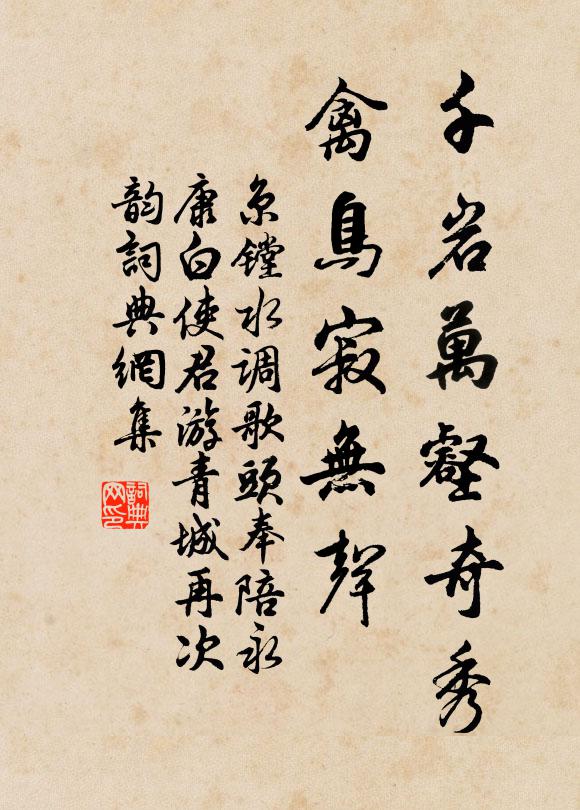 千岩萬壑奇秀
禽鳥寂無聲
京镗水调歌頭奉陪永
康白使君游青城再次
韵詞典網集
詞典
网印